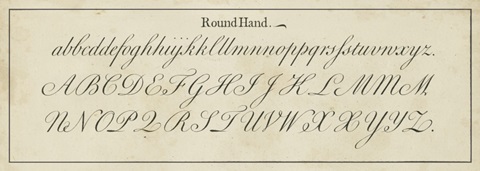 Round Hand.
abbcddefoghhijjkkllllmnnoppqrsſstuvwxyz.
ABCDEFGHIJKLMMM.
NNOPQRSTUVWXXYYZ.